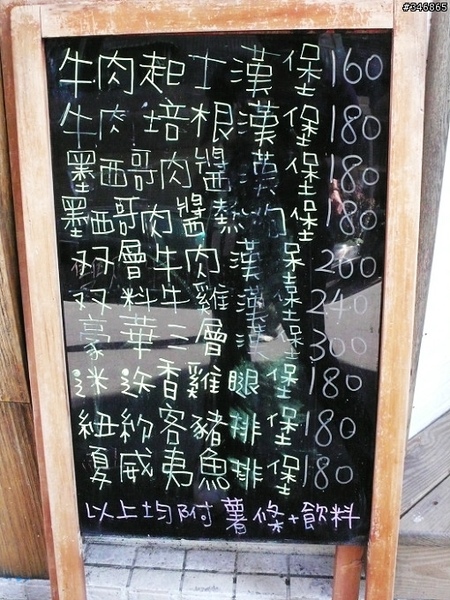 #346865
牛肉起士漢堡160
牛肉培根漢堡180
墨西哥肉醬漢堡180
墨西哥肉醬熱狗堡180
双層牛肉漢堡200
双料牛雞漢堡240
豪華三層漢堡300
迷迭香雞腿堡180
紐約客豬排堡180
夏威夷魚排堡180
以上均附薯條+飲料